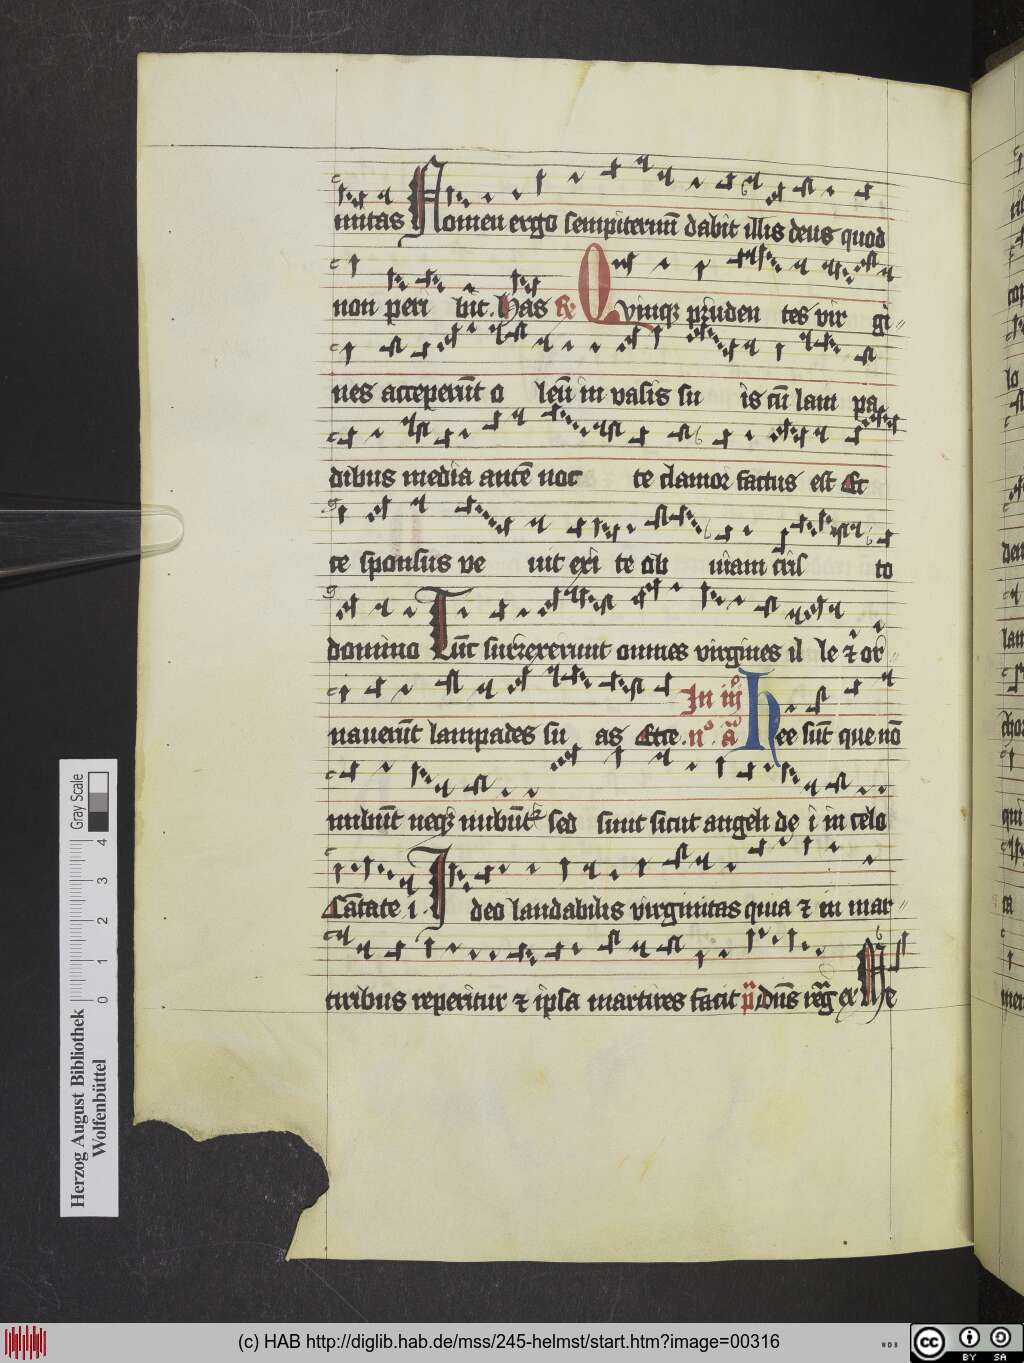 nitas Nomen ergo sempiternū dabit illis deus quod
non peri bit. Has R Quinqꝫ pruden tes vir gi
nes acceperūt o leū in vasis su is cū lam pa
dibus media autē noc te clamor factus est Ec
ce sponsus ve nit exi te ob uiam cris to
domino Tūc surrexerunt omnes virgines il le ⁊ or
nauerūt lampades su as Ecce. In iijº nº. ā Hee sūt que nō
nubūt neqꝫ nubūt sed sunt sicut angeli dei in celo
Cātate i. Ideo laudabilis virginitas quia ⁊ in mar
tiribus reperitur ⁊ ipsa martires facit p̄ dn̄s reg̅ Ne
Herzog August Bibliothek
Wolfenbüttel
0 1 2 3 4
Gray Scale
(c) HAB http://diglib.hab.de/mss/245-helmst/start.htm?image=00316
WDB
cc BY SA